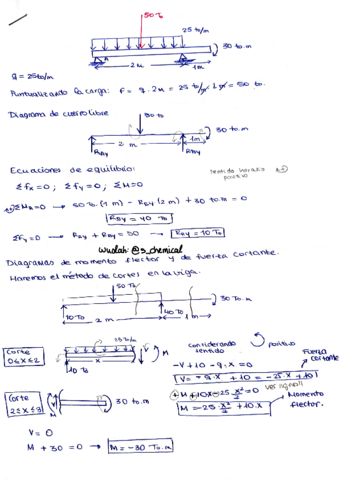 50 to
25 to/m
30 to.m
A
2m
1m
q = 25 to/m
Puntualizando la carga: F = q · 2m = 25 to/m · 2m = 50 to.
Diagrama de cuerpo libre
50 to
30 to.m
2 m
1m
RAy
RBy
Ecuaciones de equilibrio:
sentido horario
positivo
Σfx = 0 ; Σfy = 0 ; ΣM = 0
ΣMA = 0 → 50 To. (1 m) - RBy (2 m) + 30 to.m = 0
RBy = 40 To
ΣFy = 0 → RAy + RBy = 50 → RAy = 10 To
wuolah: @s_chemical
Diagramas de momento flector y de fuerza cortante.
Haremos el método de cortes en la viga.
50 To
30 To.m
10 To
40 To
2 m
1 m
Corte
0≤x≤2
25 to/m
x
V
M
10 To
considerando
sentido
positivo
-V + 10 - q·x = 0
Fuerza
cortante
V = -q·x + 10 = -25·x + 10
ver signo!!
M + 10x - 25 x²/2 = 0
Momento
flector.
M = -25 x²/2 + 10·x
Corte
2≤x≤3
M
V
30 to.m
V = 0
M + 30 = 0 → M = -30 To.m